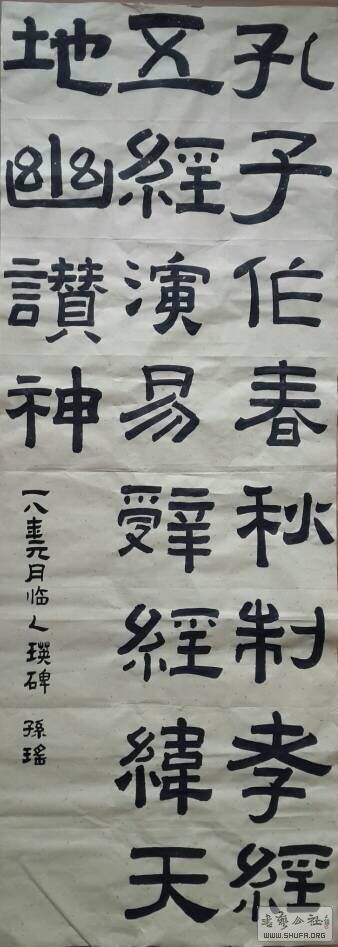 孔子作春秋制孝經
五經演易辭經緯天
地幽讚神
一八年元月临乙瑛碑 孫瑤
书艺公社
WWW.SHUFA.ORG